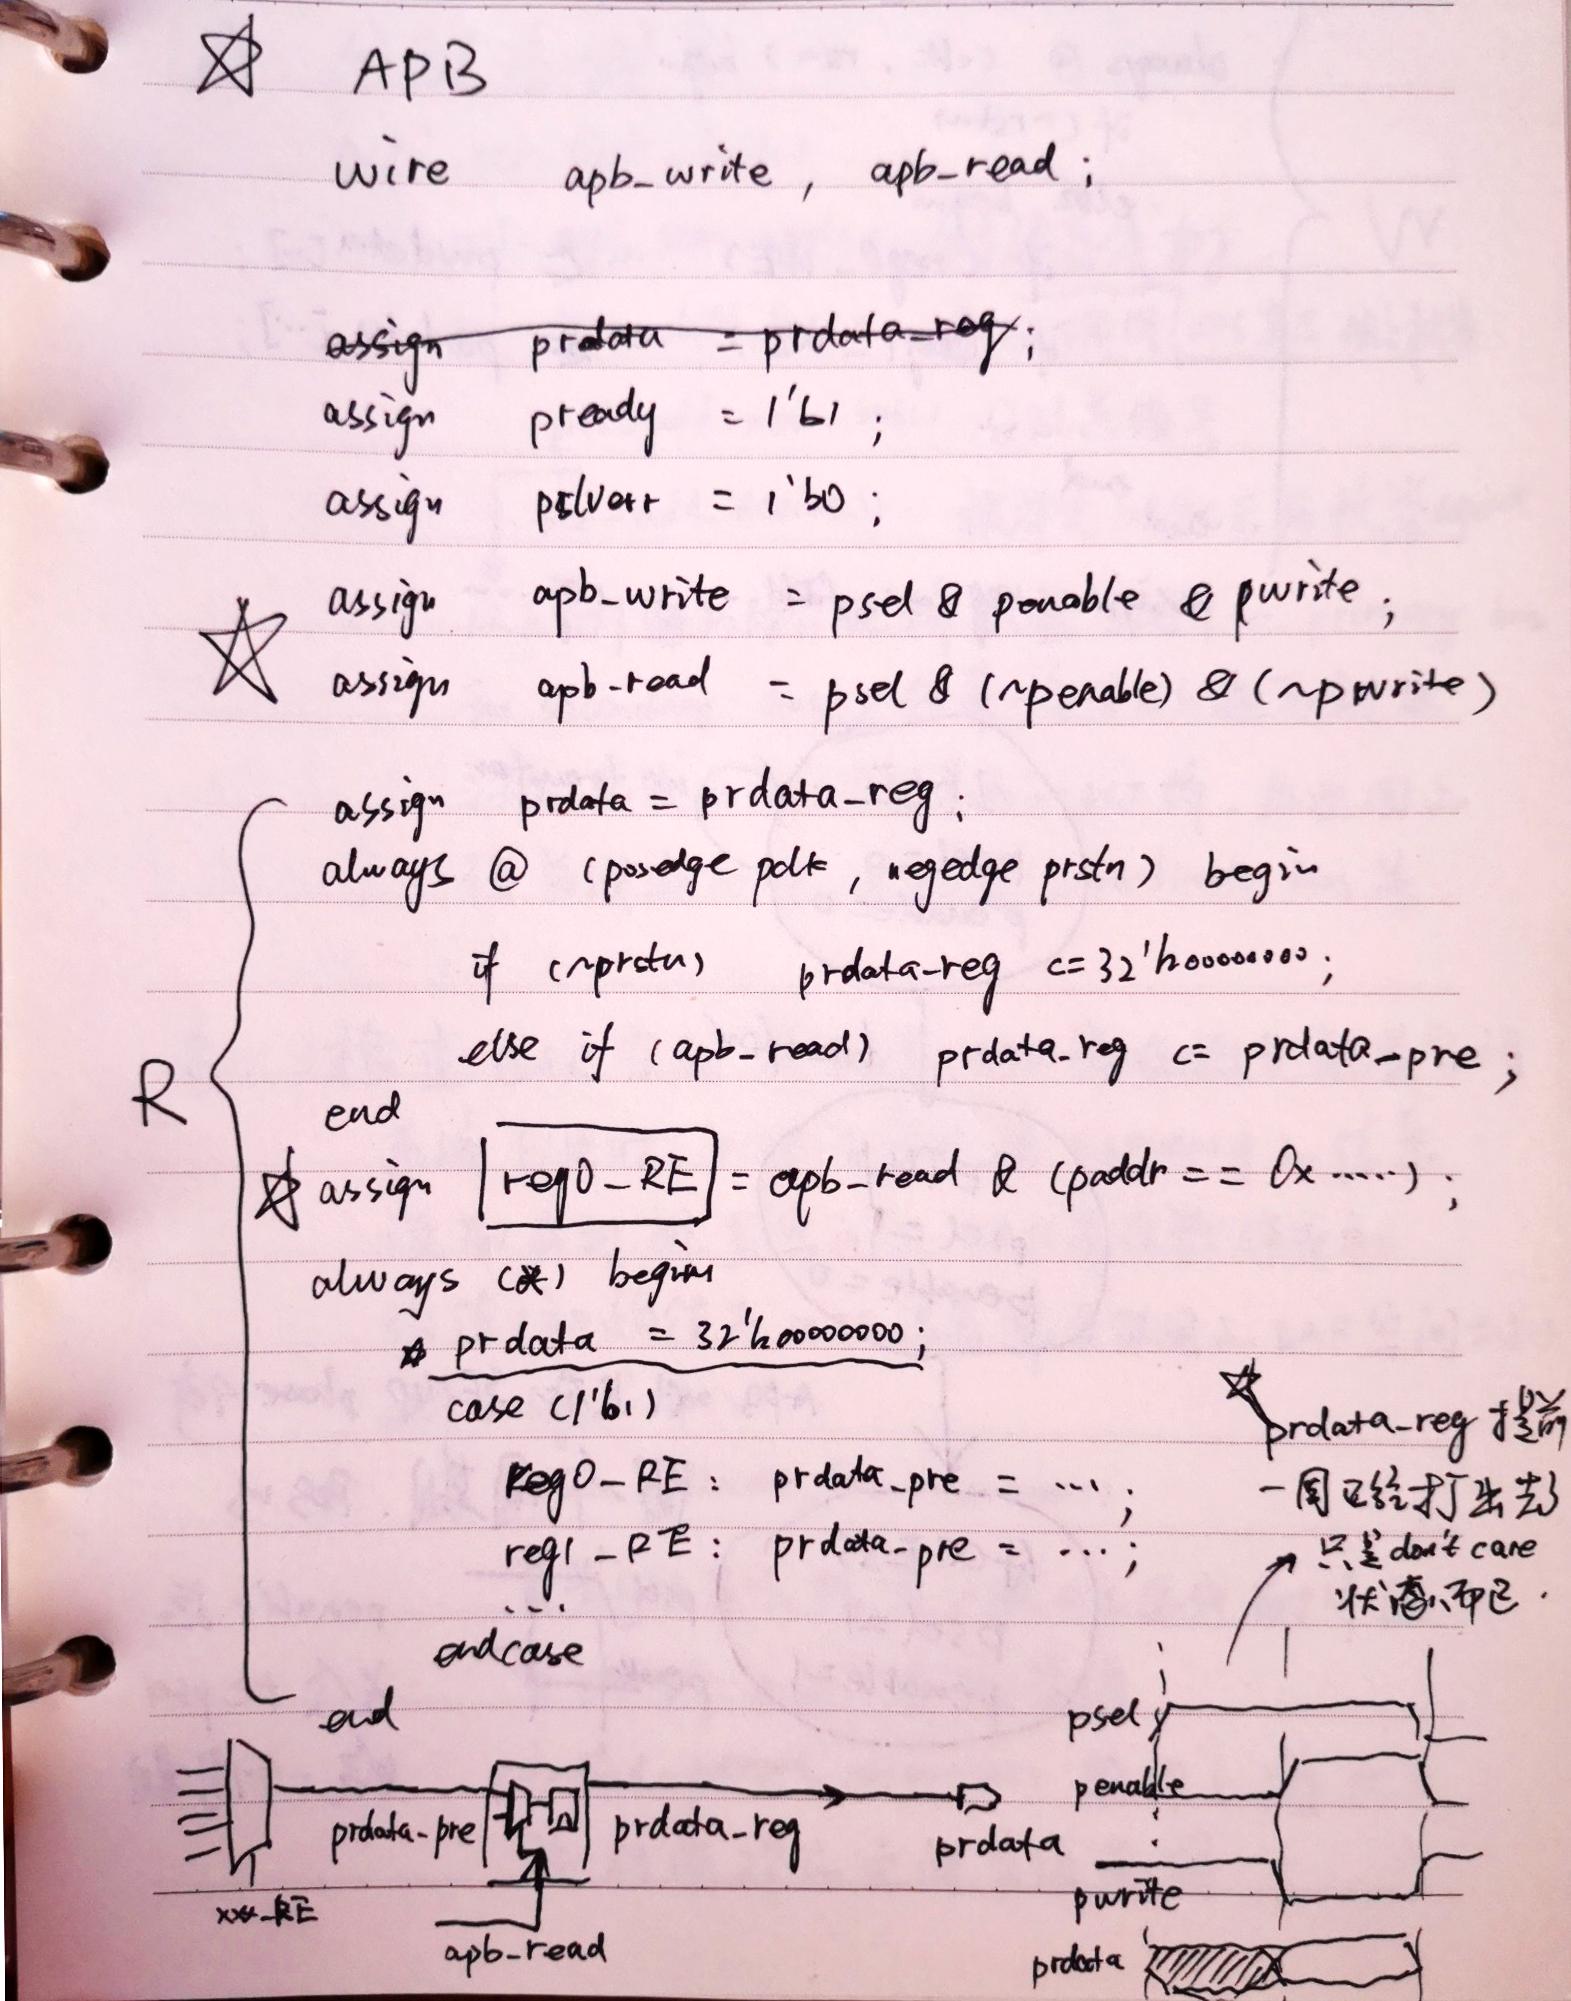 APB
wire apb_write , apb_read ;
assign prdata = prdata_reg ;
assign pready = 1'b1 ;
assign pslverr = 1'b0 ;
assign apb_write = psel & penable & pwrite ;
assign apb-read = psel & (~penable) & (~pwrite)
R
assign prdata = prdata_reg ;
always @ (posedge pclk , negedge prstn) begin
if (~prstn) prdata-reg <= 32'h00000000 ;
else if (apb_read) prdata_reg <= prdata_pre ;
end
assign reg0_RE = apb_read & (paddr == 0x ·····) ;
always (*) begin
* prdata = 32'h00000000 ;
case (1'b1)
reg0_RE : prdata_pre = ... ;
reg1_RE : prdata_pre = ... ;
...
endcase
end
prdata_reg 提前
一周已经打出去了
只是 don't care
状态而已 .
prdata_pre
prdata_reg
prdata
xxx_RE
apb_read
psel
penable
pwrite
prdata